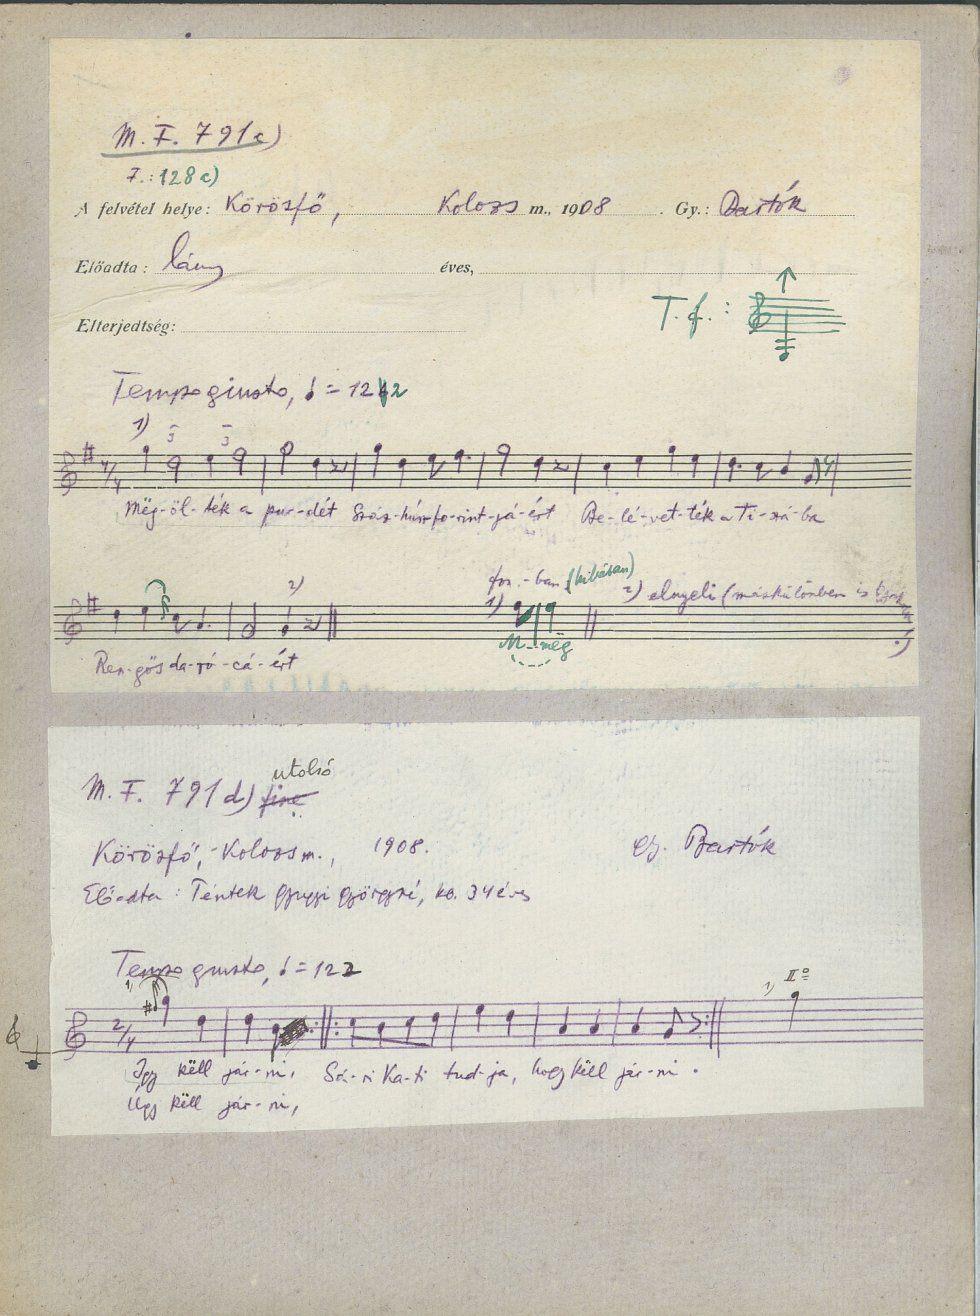 M. F. 791 c)
7.: 128 c)
A felvétel helye: Körösfő, Kolozs m., 1908 . Gy.: Bartók
Előadta: lány éves,
T. f. :
Elterjedtség:
Tempo giusto, ♩ = 12
1) 3 3
4/4
Mëg-öl-ték a pur-dét Száz-húsz-fo-rint-já-ért Be-lé-vet-ték a Ti-szá-ba
fon.-ban (hibásan)
2) 1) 2) elnyeli (máskülönben is
M--még
Ren-gös da-ró-cá-ért
utolsó
M. F. 791 d) fine
Körösfő, Kolozs m., 1908. Gy. Bartók
Előadta: Péntek Gyugyi Györgyné, kb. 34 éves
Tempo giusto, ♩ = 122
1) 1) IIº
2/4
Igy këll jár-ni, Sá-ri Ka-ti tud-ja, hogy këll jár-ni.
Úgy këll jár-ni,